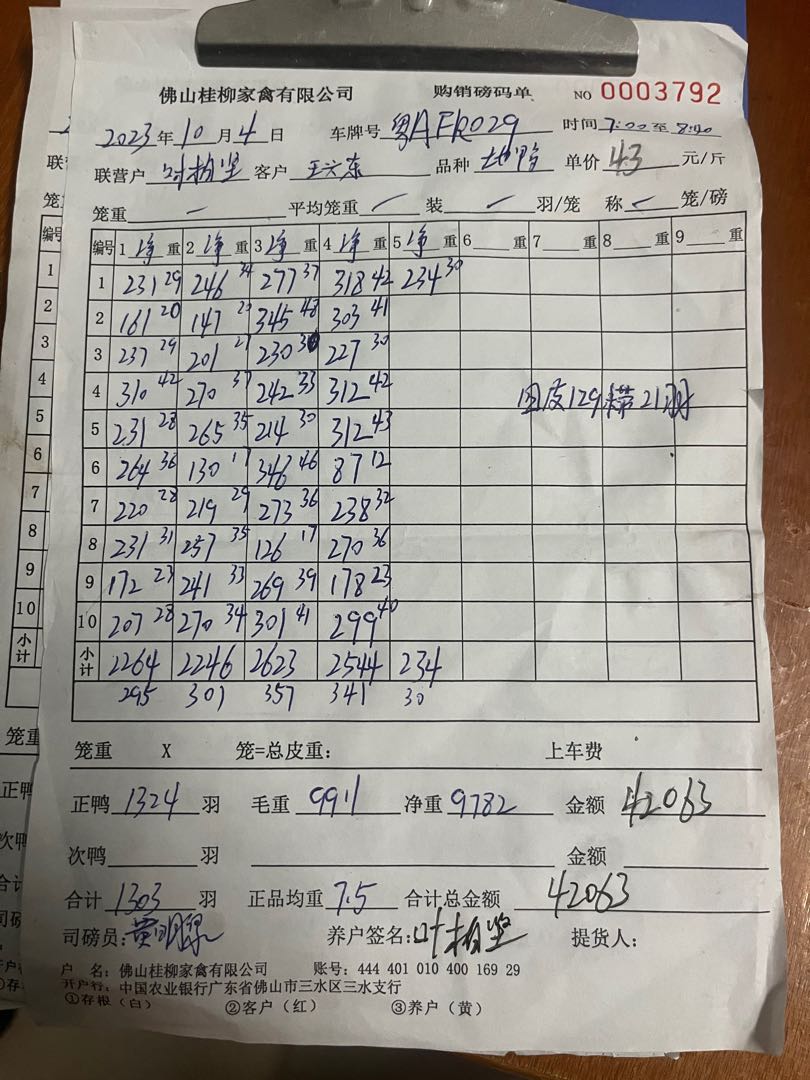 佛山桂柳家禽有限公司 购销磅码单 NO 0003792
2023年10月4日 车牌号 粤AFR029 时间 7:00至8:40
联营户 叶柏坚 客户 王兴东 品种 地鸭 单价 43 元/斤
笼重 一 平均笼重 一 装 一 羽/笼 称 一 笼/磅
编号 1净重 2净重 3净重 4净重 5净重 6 重 7 重 8 重 9 重
1 231 29 246 34 277 37 318 42 234 30
2 161 20 147 20 345 48 303 41
3 237 29 201 27 230 30 227 30
4 310 42 270 37 242 33 312 42 回皮129 21羽
5 231 28 265 35 214 30 312 43
6 264 36 130 17 346 46 87 12
7 220 28 219 29 273 36 238 32
8 231 31 257 35 126 17 270 36
9 172 23 241 33 269 39 178 23
10 207 28 270 34 301 41 299 40
小计 2264 2246 2623 2544 234
295 301 357 341 30
笼重 X 笼=总皮重: 上车费
正鸭 1324 羽 毛重 9911 净重 9782 金额 42063
次鸭 羽 金额
合计 1303 羽 正品均重 7.5 合计总金额 42063
司磅员: 养户签名: 叶柏坚 提货人:
户 名: 佛山桂柳家禽有限公司 账号: 444 401 010 400 169 29
开户行: 中国农业银行广东省佛山市三水区三水支行
①存根（白） ②客户（红） ③养户（黄）